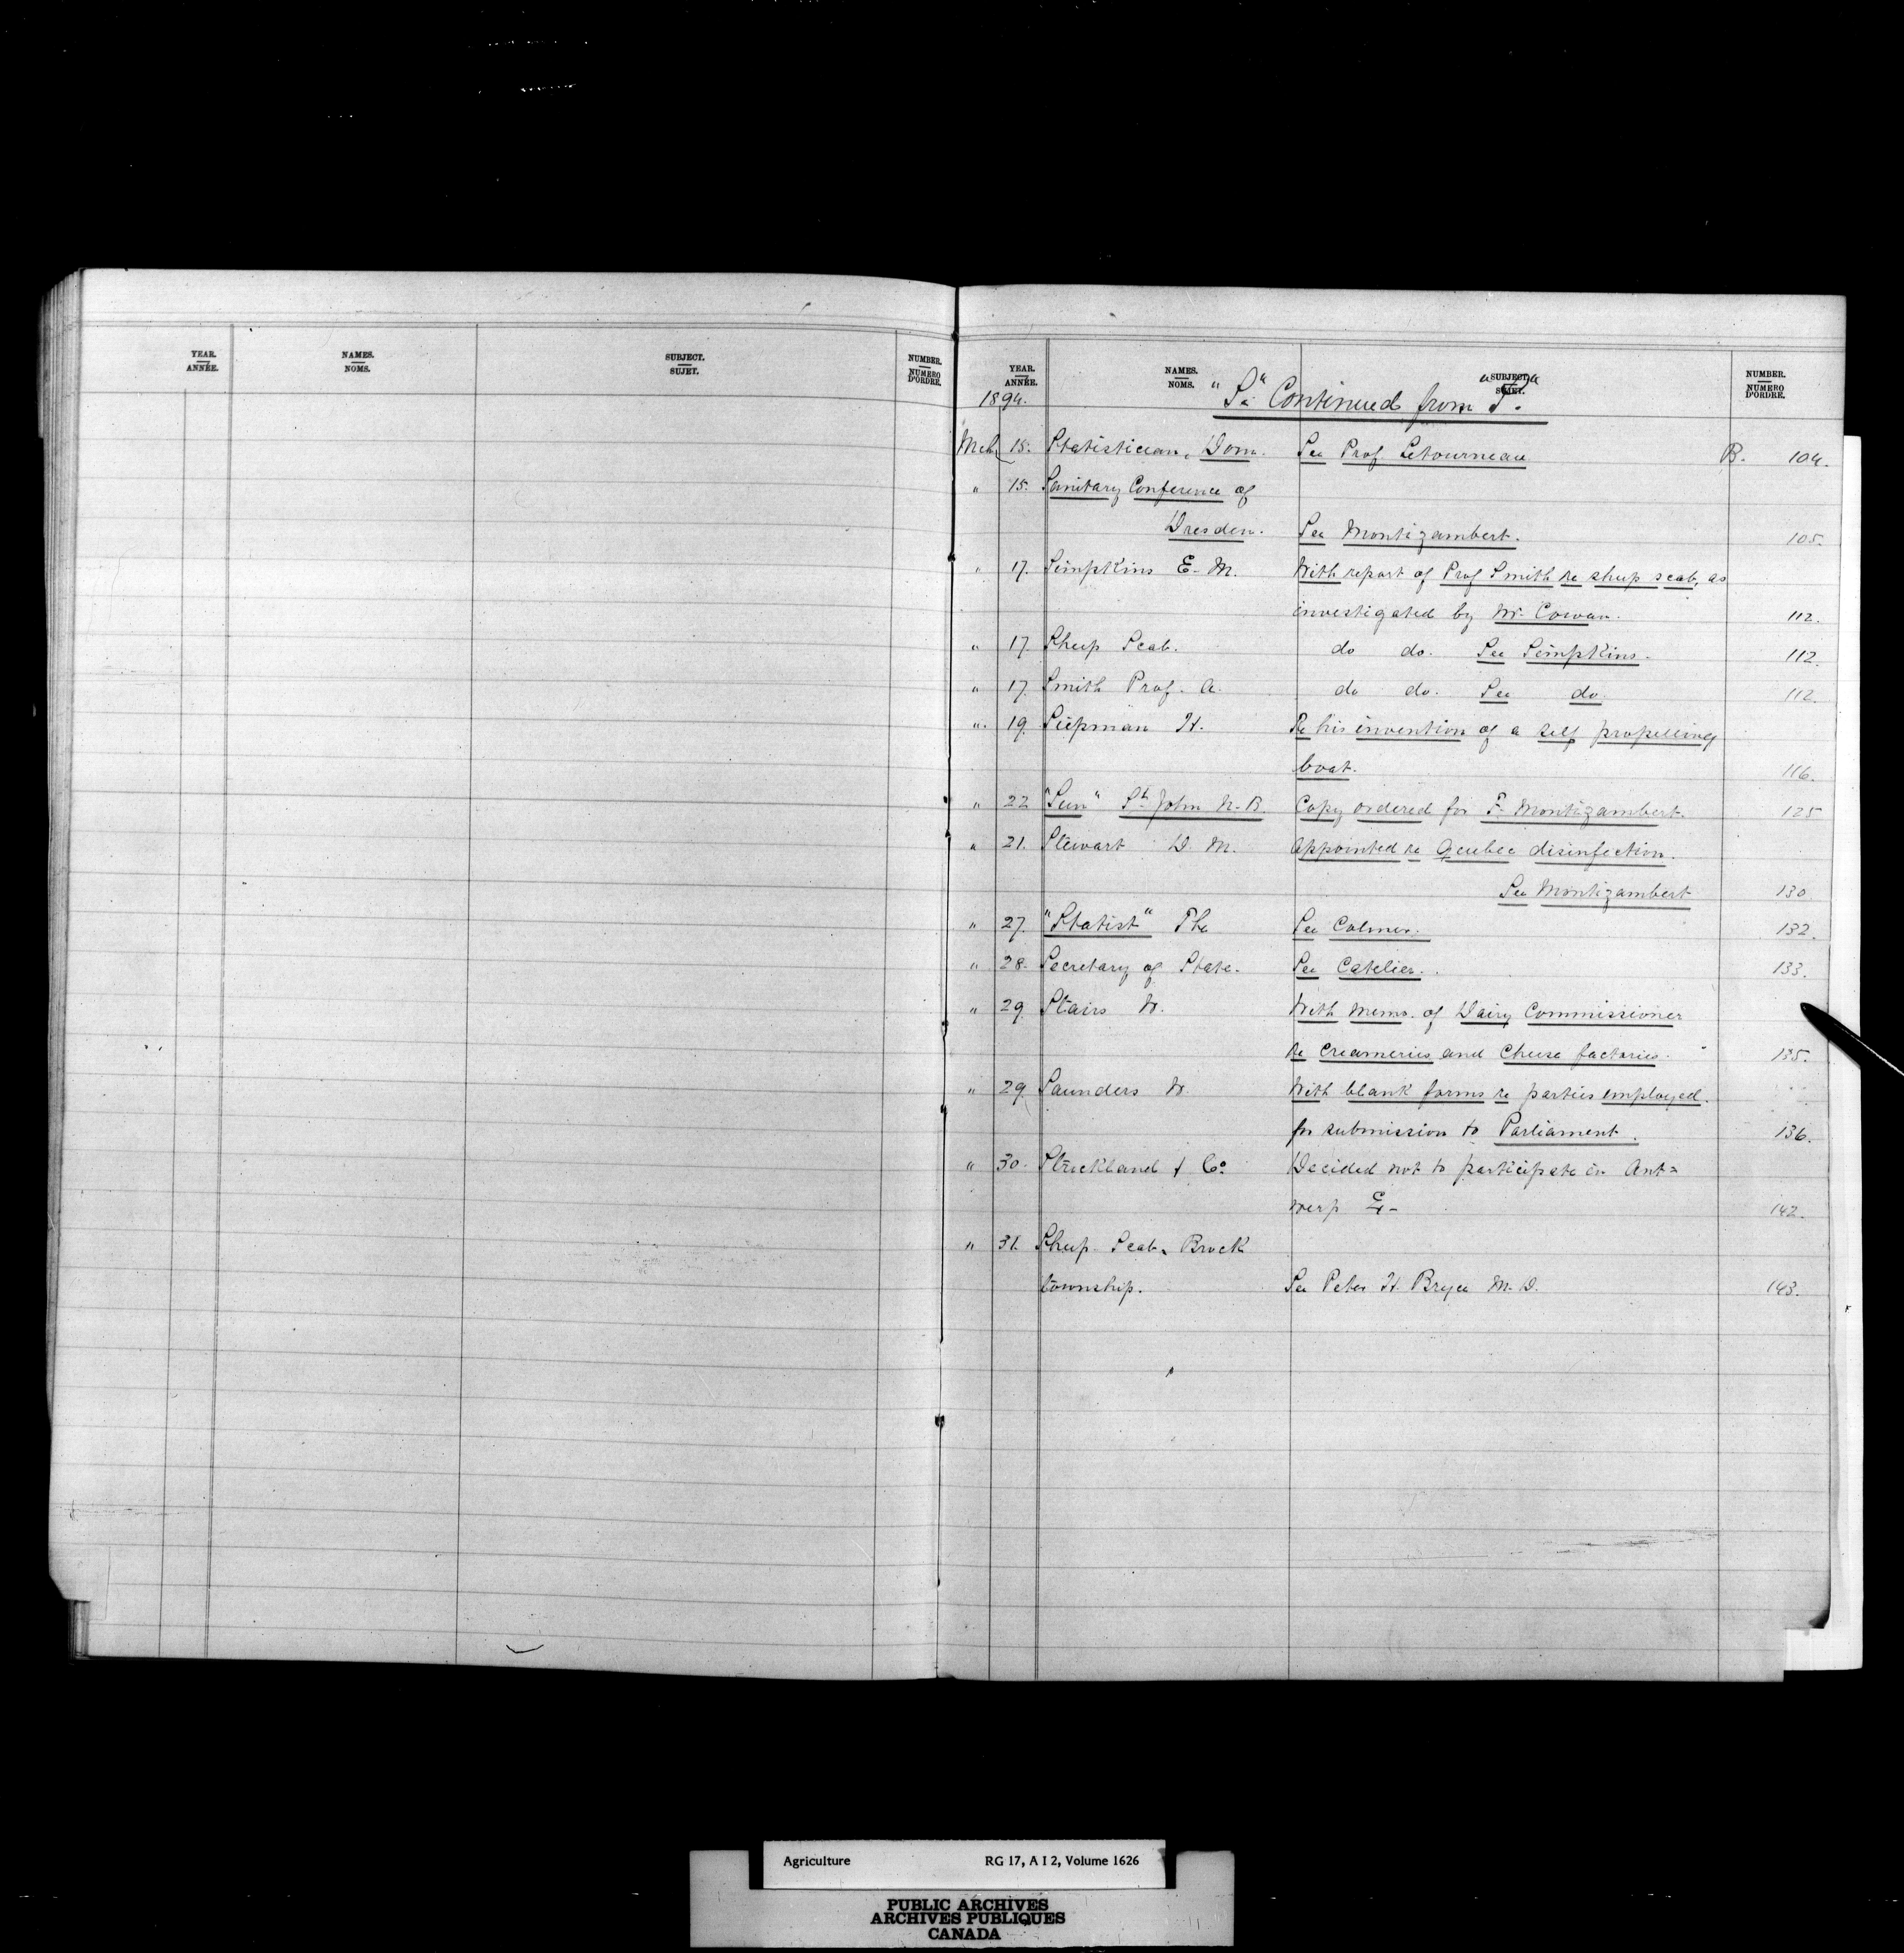 YEAR. ANNÉE. NAMES. NOMS. SUBJECT. SUJET. NUMBER. NUMERO D'ORDRE.
YEAR. ANNÉE. NAMES. NOMS. SUBJECT. SUJET. NUMBER. NUMERO D'ORDRE.
1894. "S" Continued from
Mch 15. Statistician, Dom. See Prof Letourneau B. 104.
" 15. Sanitary Conference of
Dresden. See Montizambert. 105.
" 17. Simpkins E. M. With report of Prof Smith re sheep scab, as
investigated by Mr. Cowan. 112.
" 17. Sheep Scab. do do. See Simpkins. 112.
" 17. Smith Prof. A. do do. See do. 112.
" 19. Siepman H. Re his invention of a self propelling
boat. 116.
" 22 "Sun" St. John N-B Copy ordered for F. Montizambert. 125
" 21. Stewart D. M. Appointed re Quebec disinfection.
See Montizambert 130.
" 27. "Statist" The See Colmer. 132.
" 28. Secretary of State. See Catelier. 133.
" 29. Stairs W. With Memo. of Dairy Commissioner
re Creameries and Cheese factories. 135.
" 29. Saunders W. With blank forms re parties employed.
for submission to Parliament. 136.
" 30. Strickland & Co. Decided not to participate in Ant=
werp 142.
" 31. Sheep Scab, Brock
township. See Peter H. Bryce M. D. 143.
Agriculture RG 17, A I 2, Volume 1626
PUBLIC ARCHIVES
ARCHIVES PUBLIQUES
CANADA